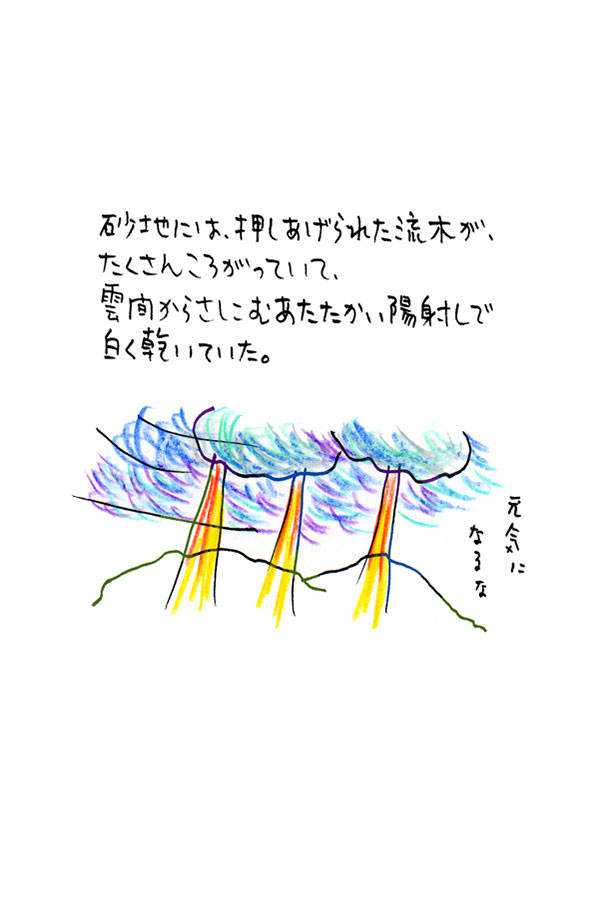 砂地には、押しあげられた流木が、
たくさんころがっていて、
雲間からさしこむあたたかい陽射しで
白く乾いていた。
元気に
なるな